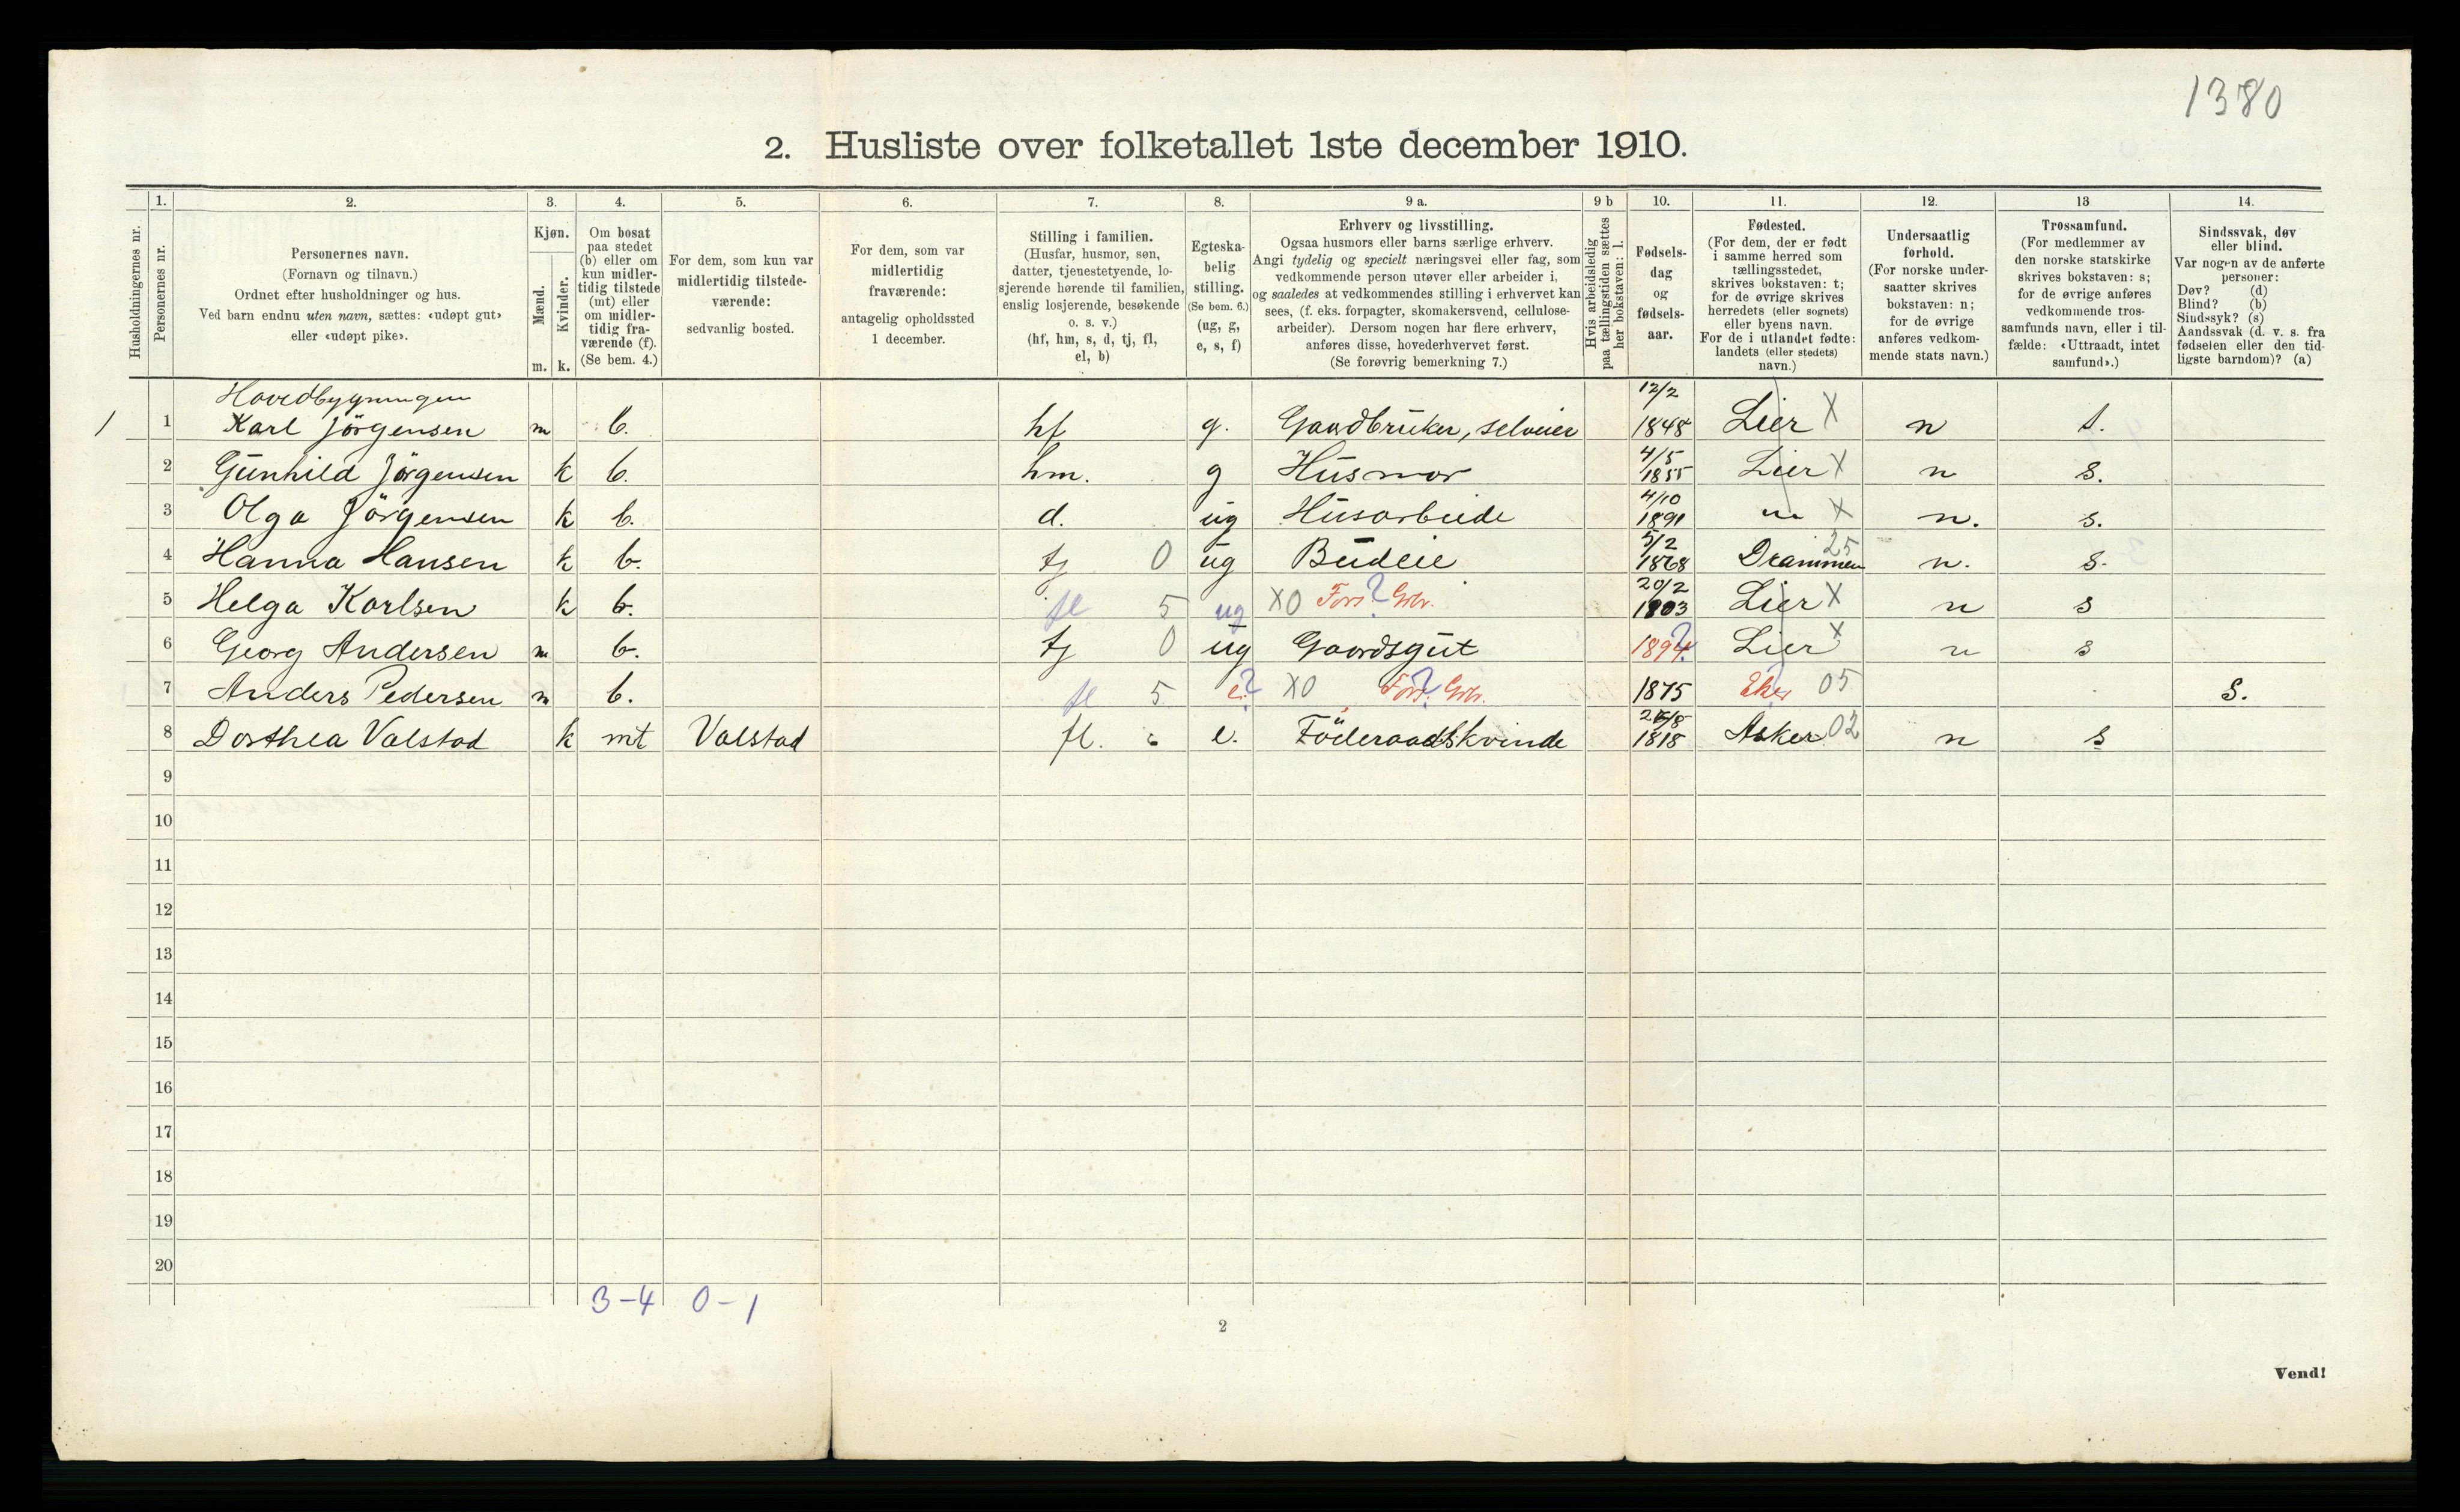 1380
2. Husliste over folketallet 1ste december 1910.
1. 2. 3. 4. 5. 6. 7. 8. 9 a. 9 b 10. 11. 12. 13 14.
Husholdningernes nr.
Personernes nr.
Personernes navn.
(Fornavn og tilnavn.)
Ordnet efter husholdninger og hus.
Ved barn endnu uten navn, sættes: «udøpt gut»
eller «udøpt pike».
Kjøn.
Mænd.
Kvinder.
m. k.
Om bosat
paa stedet
(b) eller om
kun midler-
tidig tilstede
(mt) eller
om midler-
tidig fra-
værende (f).
(Se bem. 4.)
For dem, som kun var
midlertidig tilstede-
værende:
sedvanlig bosted.
For dem, som var
midlertidig
fraværende:
antagelig opholdssted
1 december.
Stilling i familien.
(Husfar, husmor, søn,
datter, tjenestetyende, lo-
sjerende hørende til familien,
enslig losjerende, besøkende
o. s. v.)
(hf, hm, s, d, tj, fl,
el, b)
Egteska-
belig
stilling.
(Se bem. 6.)
(ug, g,
e, s, f)
Erhverv og livsstilling.
Ogsaa husmors eller barns særlige erhverv.
Angi tydelig og specielt næringsvei eller fag, som
vedkommende person utøver eller arbeider i,
og saaledes at vedkommendes stilling i erhvervet kan
sees, (f. eks. forpagter, skomakersvend, cellulose-
arbeider). Dersom nogen har flere erhverv,
anføres disse, hovederhvervet først.
(Se forøvrig bemerkning 7.)
Hvis arbeidsledig
paa tællingstiden sættes
her bokstaven: l.
Fødsels-
dag
og
fødsels-
aar.
Fødested.
(For dem, der er født
i samme herred som
tællingsstedet,
skrives bokstaven: t;
for de øvrige skrives
herredets (eller sognets)
eller byens navn.
For de i utlandet fødte:
landets (eller stedets)
navn.)
Undersaatlig
forhold.
(For norske under-
saatter skrives
bokstaven: n;
for de øvrige
anføres vedkom-
mende stats navn.)
Trossamfund.
(For medlemmer av
den norske statskirke
skrives bokstaven: s;
for de øvrige anføres
vedkommende tros-
samfunds navn, eller i til-
fælde: «Uttraadt, intet
samfund».)
Sindssvak, døv
eller blind.
Var nogen av de anførte
personer:
Døv? (d)
Blind? (b)
Sindssyk? (s)
Aandssvak (d. v. s. fra
fødselen eller den tid-
ligste barndom)? (a)
Hovedbygningen 12/2
1 1 Karl Jörgensen m b. hf g. Gaardbruker, selveier 1848 Lier X n s.
2 Gunhild Jörgensen k b. hm. g Husmor 4/5 1855 Lier X n s.
3 Olga Jörgensen k b. d. ug Husarbeide 4/10 1891 " X n. s.
4 Hanna Hansen k b. tj 0 ug Budeie 5/2 1868 Drammen 25 n. s.
5 Helga Karlsen k b. fl 5 ug XO Fors? Grbr. 20/2 1903 Lier X n s
6 Georg Andersen m b. tj 0 ug Gaardsgut 1894? Lier X n s
7 Anders Pedersen m b. fl 5 e? XO Fors? Grbr. 1875 Eker 05 S.
8 Dorthea Valstad k mt Valstad fl. 6 e. Föderaadskvinde 1818 Asker 02 n s
9
10
11
12
13
14
15
16
17
18
19
20
3-4 0-1
2
Vend!